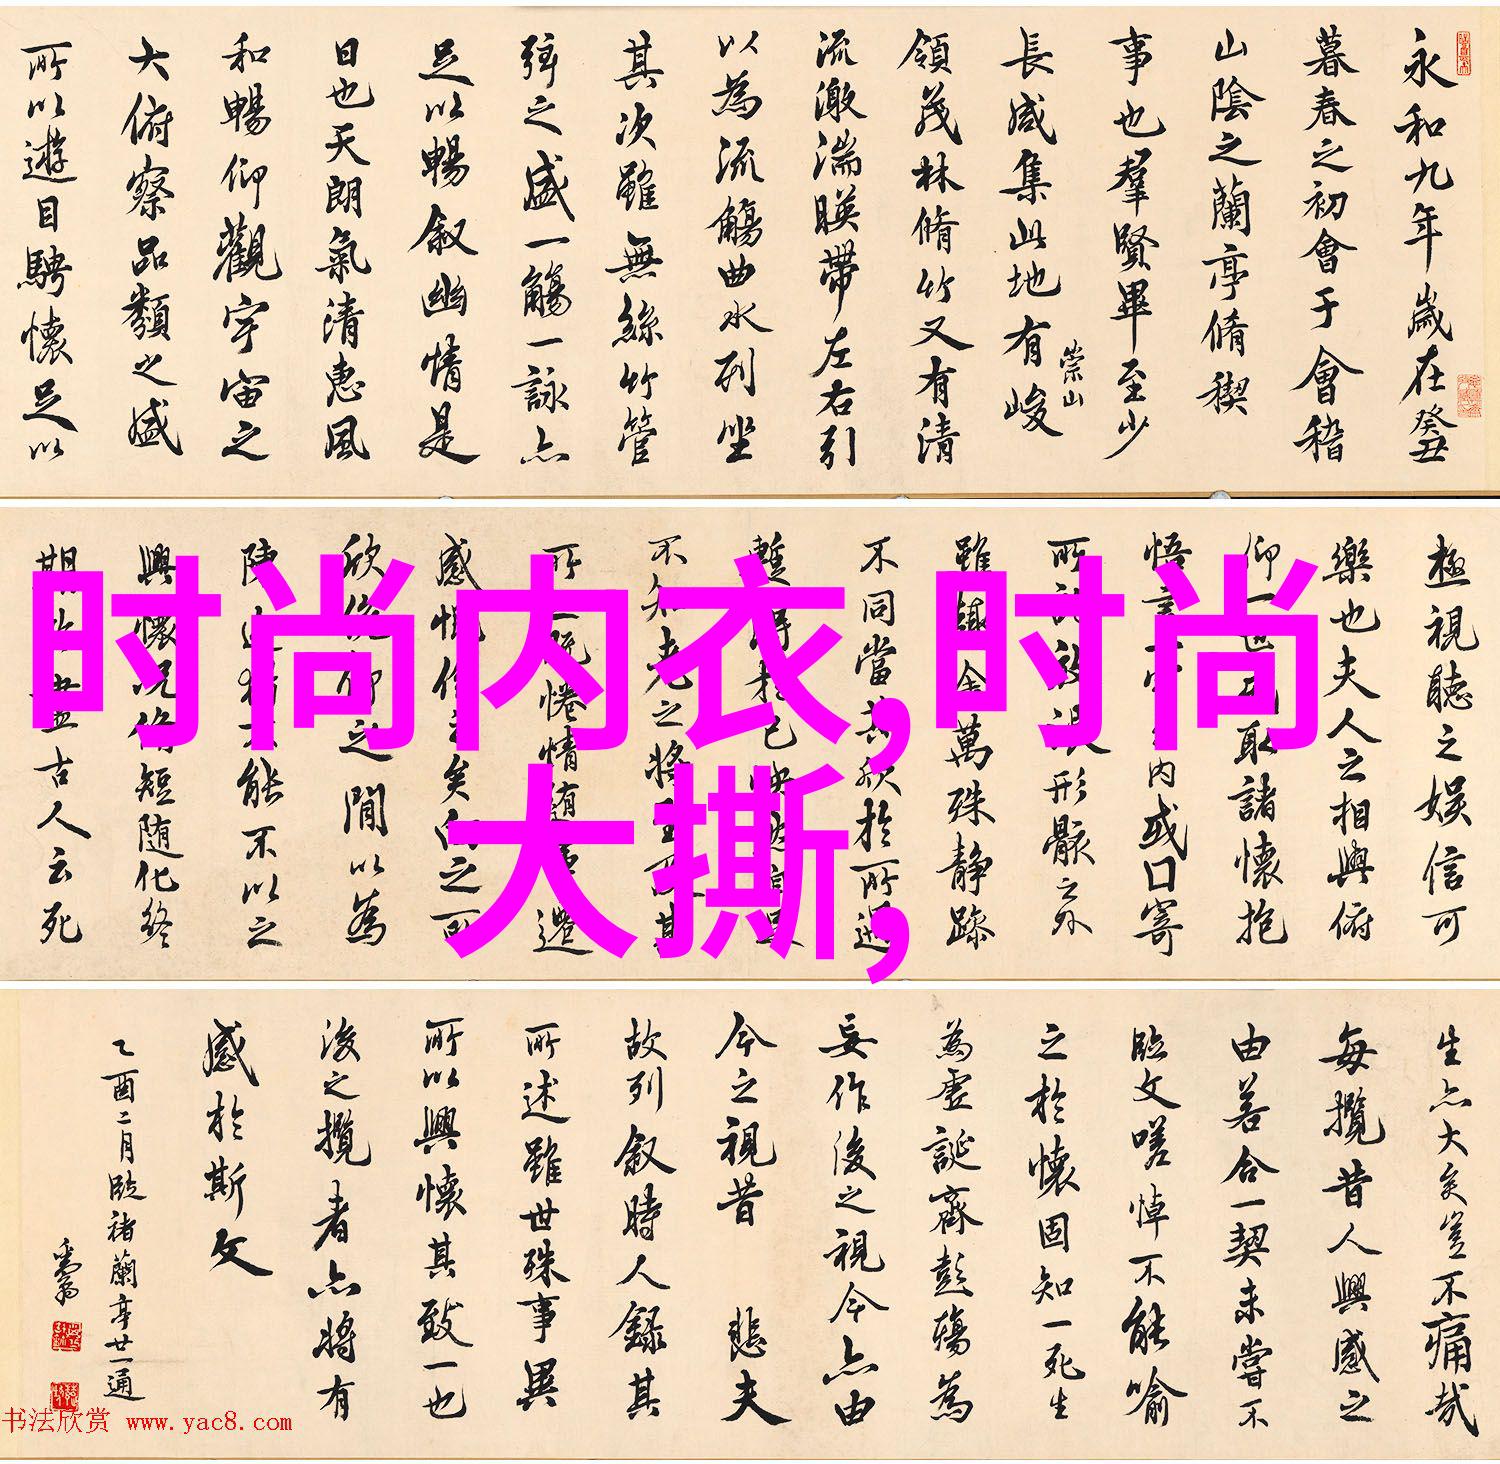 永和九年歲在癸丑
暮春之初會于會稽
山陰之蘭亭脩稧
事也羣賢畢至少
長咸集此地有崇山峻
領茂林脩竹又有清
流激湍暎帶左右引
以為流觴曲水列坐
其次雖無絲竹管
弦之盛一觴一詠亦
足以暢叙幽情是
日也天朗氣清惠風
和暢仰觀宇宙之
大俯察品類之盛
所以遊目騁懷足以
極視聽之娛信可
樂也夫人之相與俯
仰一世或取諸懷抱
悟言一室之內或因寄
所託放浪形骸之外
雖趣舍萬殊靜躁
不同當其欣於所遇
暫得於己快然自足
不知老之將至及其
所之既惓情隨事遷
感慨係之矣向之所
欣俛仰之間以為
陳迹猶不能不以之
興懷況脩短隨化終
期於盡古人云死
时尚内衣,时尚
大撕,
生亦大矣豈不痛哉
每攬昔人興感之
由若合一契未嘗不
臨文嗟悼不能喻
之於懷固知一死生
為虛誕齊彭殤為
妄作後之視今亦由
今之視昔 悲夫
故列叙時人錄其
所述雖世殊事異
所以興懷其致一也
後之攬者亦將有
感於斯文
乙酉二月臨褚蘭亭廿一通
书法欣赏 www.yac8.com